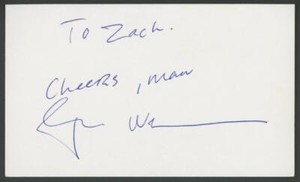 To Zach.
Cheers, man